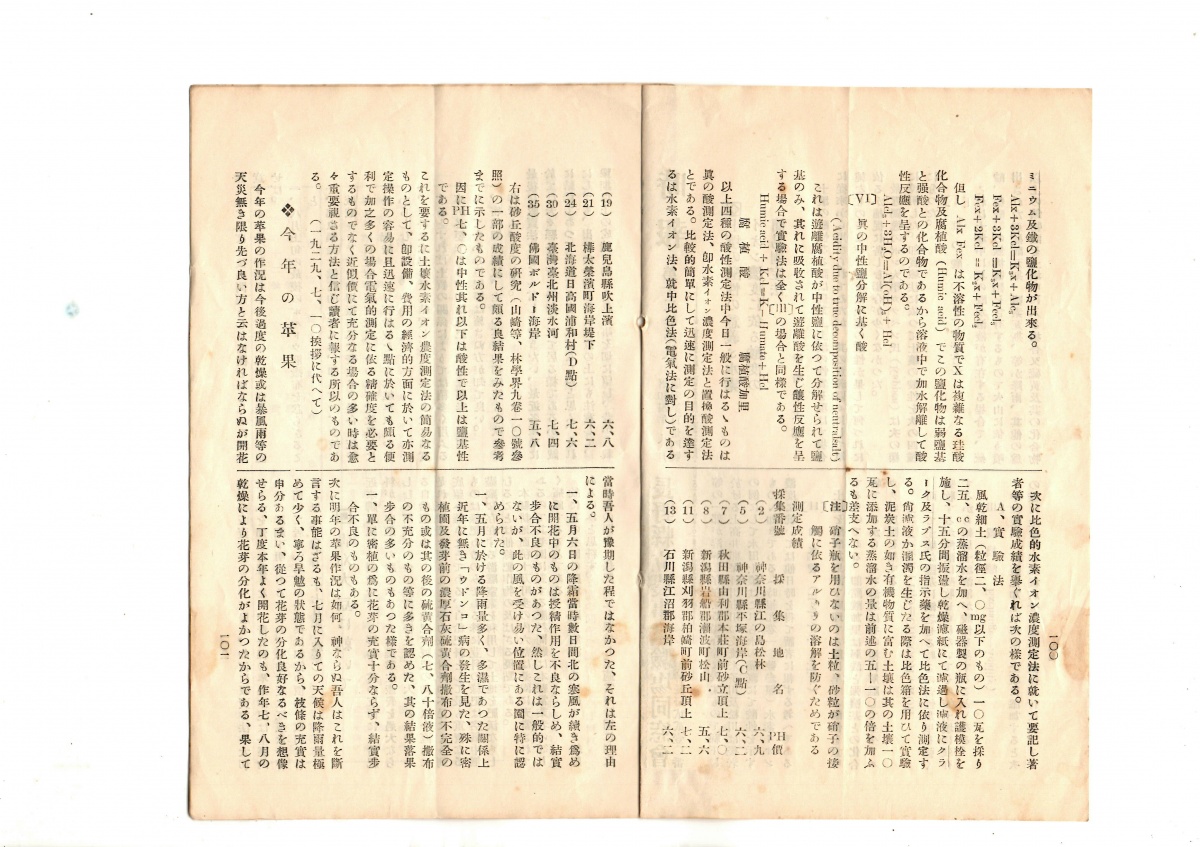 ミニウム及鐵の鹽化物が出來る。
Alx+3Kcl=K₃x+Alc₃
Fex+3Kcl=K₃x+Fecl₃
Fex+2Kcl=K₂x+Fecl₂
但し Alx Fex は不溶性の物質でXは複雜なる珪酸
化合物及腐植酸(Humic acid)でこの鹽化物は弱鹽基
と强酸との化合物であるから溶液中で加水解離して酸
性反應を呈するのである。
Alcl₃+3H₂O=Al(oH)₃+Hcl
〔VI〕 眞の中性鹽分解に基く酸
(Acidity due to true decomposition of neutralsalt)
これは遊離腐植酸が中性鹽に依つて分解せられて鹽
基のみ、其れに吸收されて遊離酸を生じ釀性反應を呈
する場合で實驗法は全く〔II〕の場合と同樣である。
Humic acid+Kcl=K-Humate+Hcl
腐植酸 腐植酸加里
以上四種の酸性測定法中今日一般に行はるゝものは
眞の酸測定法、卽水素イォン濃度測定法と置換酸測定法
とである。比較的簡單にして迅速に測定の目的を達す
るは水素イオン法、就中比色法(電氣法に對し)である
次に比色的水素イオン濃度測定法に就いて要記し著
者等の實驗成績を擧ぐれば次の樣である。
A、實驗法
風乾細土(粒徑二、〇mg以下のもの)一〇瓦を採り
二五、ccの蒸溜水を加へ、磁器製の瓶に入れ護模栓を
施し、十五分間振盪し乾燥濾紙にて濾過し濾液にクラ
ーク及ラブス氏の指示藥を加へて比色法に依り測定す
る。尙濾液か溷濁を生じたる際は比色箱を用ひて實驗
し、泥炭土の如き有機物質に富む土壤は其の土壤一〇
瓦に添加する蒸溜水の量は前述の五—一〇の倍を加ふ
るも差支へない。
〔注〕 硝子瓶を用ひないのは土粒、砂粒が硝子の接
觸に依るアルカリの溶解を防ぐためである
測定成績
採集番號 採集地名 PH價
(2) 神奈川縣江の島松林 六、九
(5) 神奈川縣平塚海岸(C點) 六、二
(7) 秋田縣由利郡本莊町前砂立頂上 七、〇
(8) 新潟縣岩船郡瀨波町松山 五、六
(11) 新潟縣刈羽郡柏崎町前砂丘頂上 七、二
(13) 石川縣江沼郡海岸 六、二
一〇〇
(19) 鹿兒島縣吹上濱 六、八
(21) 樺太榮濱町海岸堤下 六、二
(24) 北海道日高國浦和村(D點) 七、六
(30) 臺灣臺北州淡水河 七、四
(35) 佛國ボルドー海岸 五、八
右は砂丘酸度の硏究(山崎等、林學界九卷一〇號參
照)の一部の成績にして頗る良結果をみたもので參考
までに示したものである。
因にPH七、〇は中性其れ以下は酸性で以上は鹽基性
である。
これを要するに土壤水素イオン濃度測定法の簡易なる
ものとして、卽設備、費用の經濟的方面に於いて亦測
定操作の容易に且迅速に行はるゝ點に於いても頗る便
利で加之多くの場合電氣的測定に依る精確度を必要と
するものでなく近似價にて充分なる場合の多い時は愈
々重要視さる方法と信じ讀者に報する所以のものであ
る。 (一九二九、七、一〇挨拶に代へて)
❖今年の苹果
今年の苹果の作況は今後過度の乾燥或は暴風雨等の
天災無き限り先づ良い方と云はなければならぬが開花
當時吾人が豫期した程ではなかつた、それは左の理由
による。
一、五月六日の降霜當時數日間北の寒風が續き爲め
に開花中のものは授精作用を不良ならしめ、結實
步合不良のものがあつた、然しこれは一般的では
ないが、此の風を受け易い位置にある園に特に認
められた。
一、五月に於ける降雨量多く、多濕であつた關係上
近年に無き「ウドンコ」病の發生を見た、殊に密
植園及發芽前の濃厚石灰硫黃合劑撒布の不完全の
もの或は其の後の硫黃合劑(七、八十倍液)撒布
の不充分のもの等に多きを認めた、其の結果落果
步合の多いものもあつた樣である。
一、單に密植の爲に花芽の充實十分ならず、結實步
合不良のものもある。
次に明年の苹果作況は如何。神ならぬ吾人はこれを斷
言する事能はざるも、七月に入りての天候は降雨量極
めて少く、寧ろ旱魃の狀態であるから、枝條の充實は
申分あるまい、從つて花芽の分化良好なるべきを想像
せらる、丁度本年よく開花したのも、作年七、八月の
乾燥により花芽の分化がよかつたからである、果して
一〇一